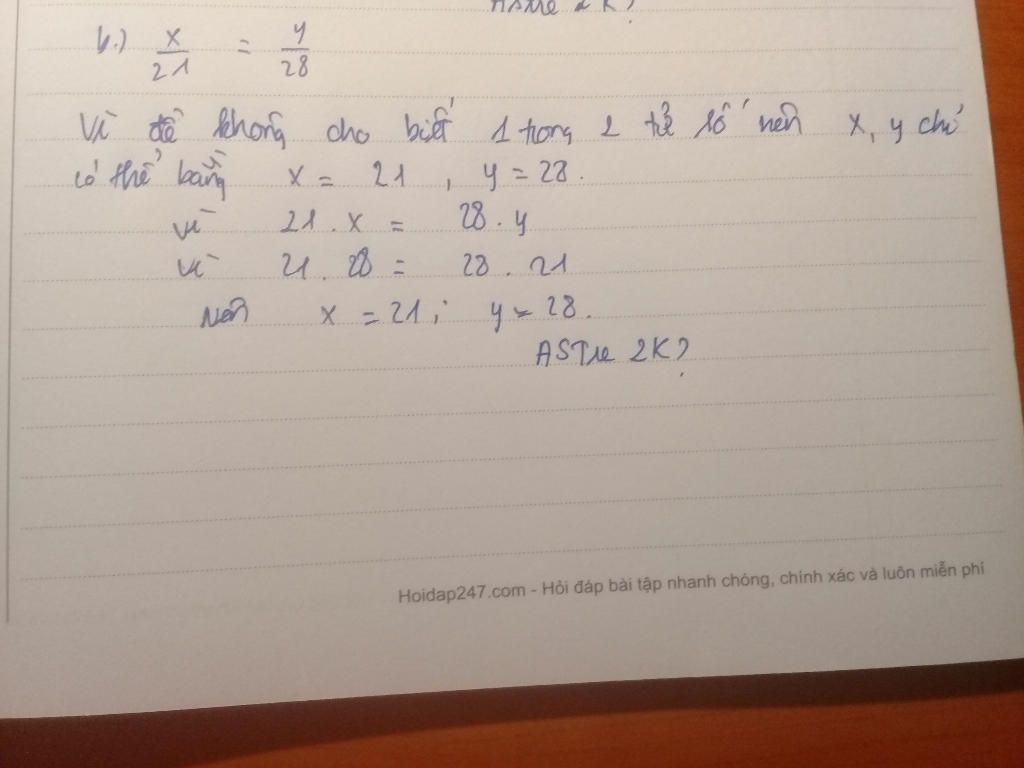 ASTRe 2K?
b.) x/21 = y/28
Vì đề không cho biết 1 trong 2 tử số nên x, y chỉ
có thể bằng x = 21 , y = 28.
vì 21 . x = 28 . y
vì 21 . 28 = 28 . 21
Nên x = 21 ; y = 28.
ASTRe 2K?
Hoidap247.com - Hỏi đáp bài tập nhanh chóng, chính xác và luôn miễn phí